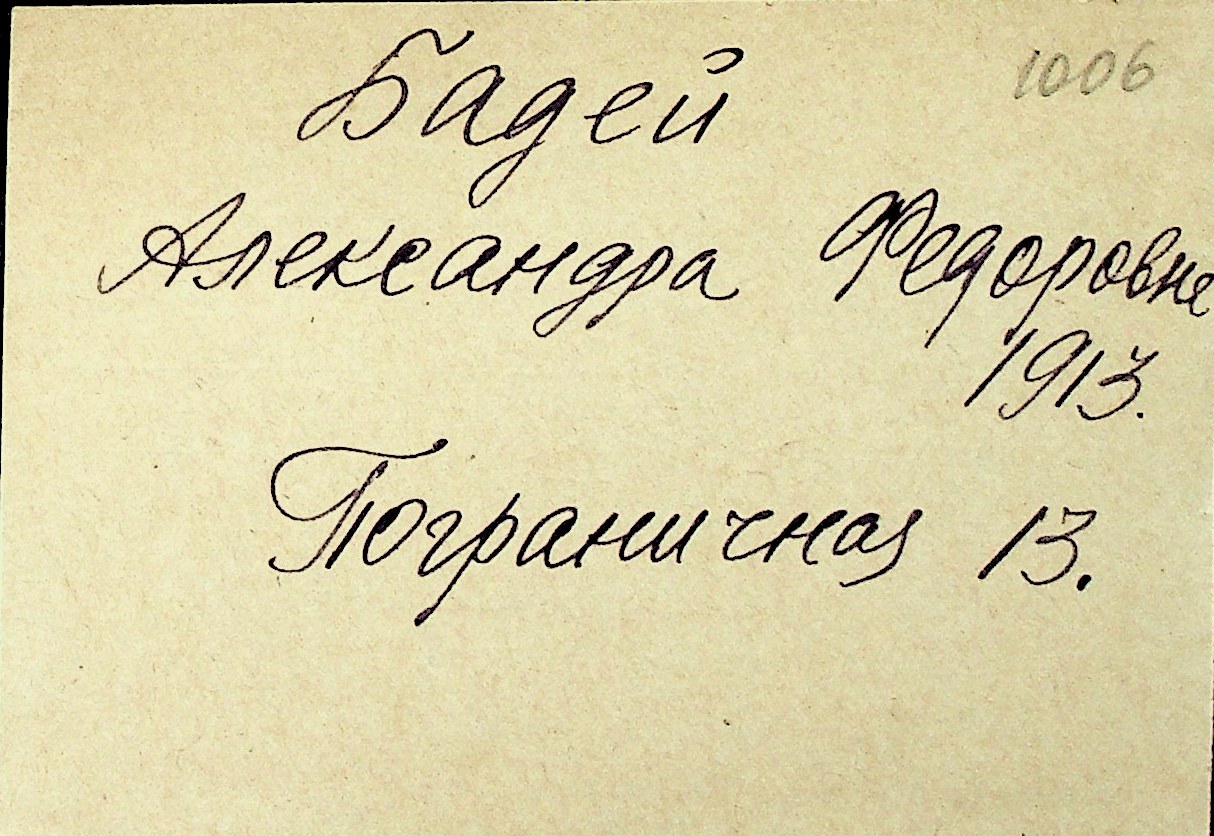 1006
Бадей
Александра Федоровна
1913.
Пограничная 13.